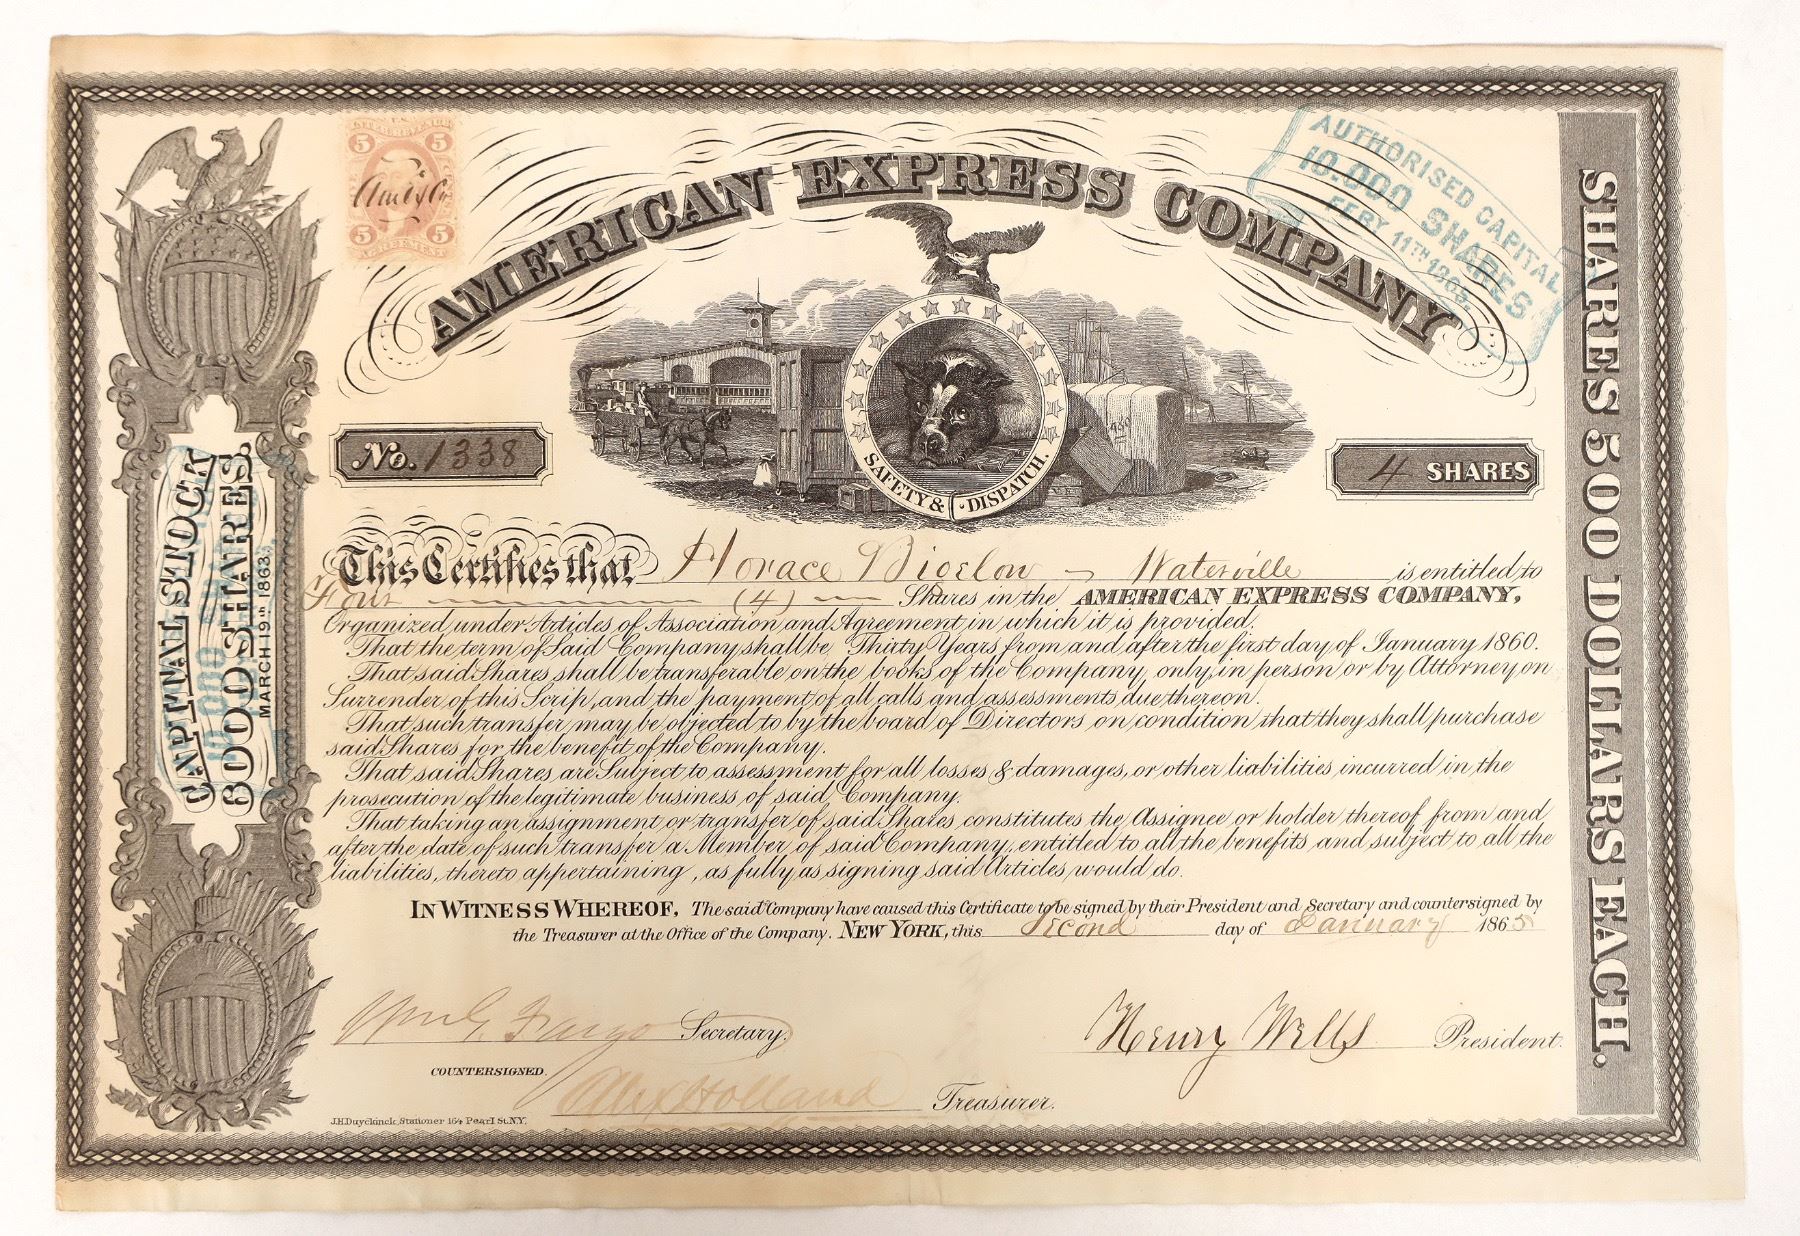 5 5
INTER. REVENUE
Am Ex Co
5 5
AGREEMENT
AMERICAN EXPRESS COMPANY
AUTHORISED CAPITAL
10.000 SHARES
FEBY 11TH 1865
SAFETY & DISPATCH.
No. 1338
4 SHARES
CAPITAL STOCK
6000 SHARES.
MARCH 19th 1863.
SHARES 500 DOLLARS EACH.
This Certifies that Horace Bigelow - Waterville is entitled to
Four (4) Shares in the AMERICAN EXPRESS COMPANY,
Organized under Articles of Association and Agreement in which it is provided.
That the term of Said Company shall be Thirty Years from and after the first day of January 1860.
That said Shares shall be transferable on the books of the Company, only, in person or by Attorney on
Surrender of this Scrip, and the payment of all calls and assessments due thereon.
That such transfer may be objected to by the board of Directors on condition that they shall purchase
said Shares for the benefit of the Company.
That said Shares are Subject to assessment for all losses & damages, or other liabilities incurred in the
prosecution of the legitimate business of said Company.
That taking an assignment or transfer of said Shares, constitutes the Assignee or holder thereof from and
after the date of such transfer a Member of said Company, entitled to all the benefits and subject to all the
liabilities, thereto appertaining, as fully as signing said Articles would do.
IN WITNESS WHEREOF, The said Company have caused this Certificate to be signed by their President and Secretary and countersigned by
the Treasurer at the Office of the Company. NEW YORK, this Second day of January 1865
Wm G. Fargo Secretary.
Henry Wells President.
COUNTERSIGNED.
Alex Holland Treasurer.
J.H.Duyckinck, Stationer 164 Pearl St. N.Y.